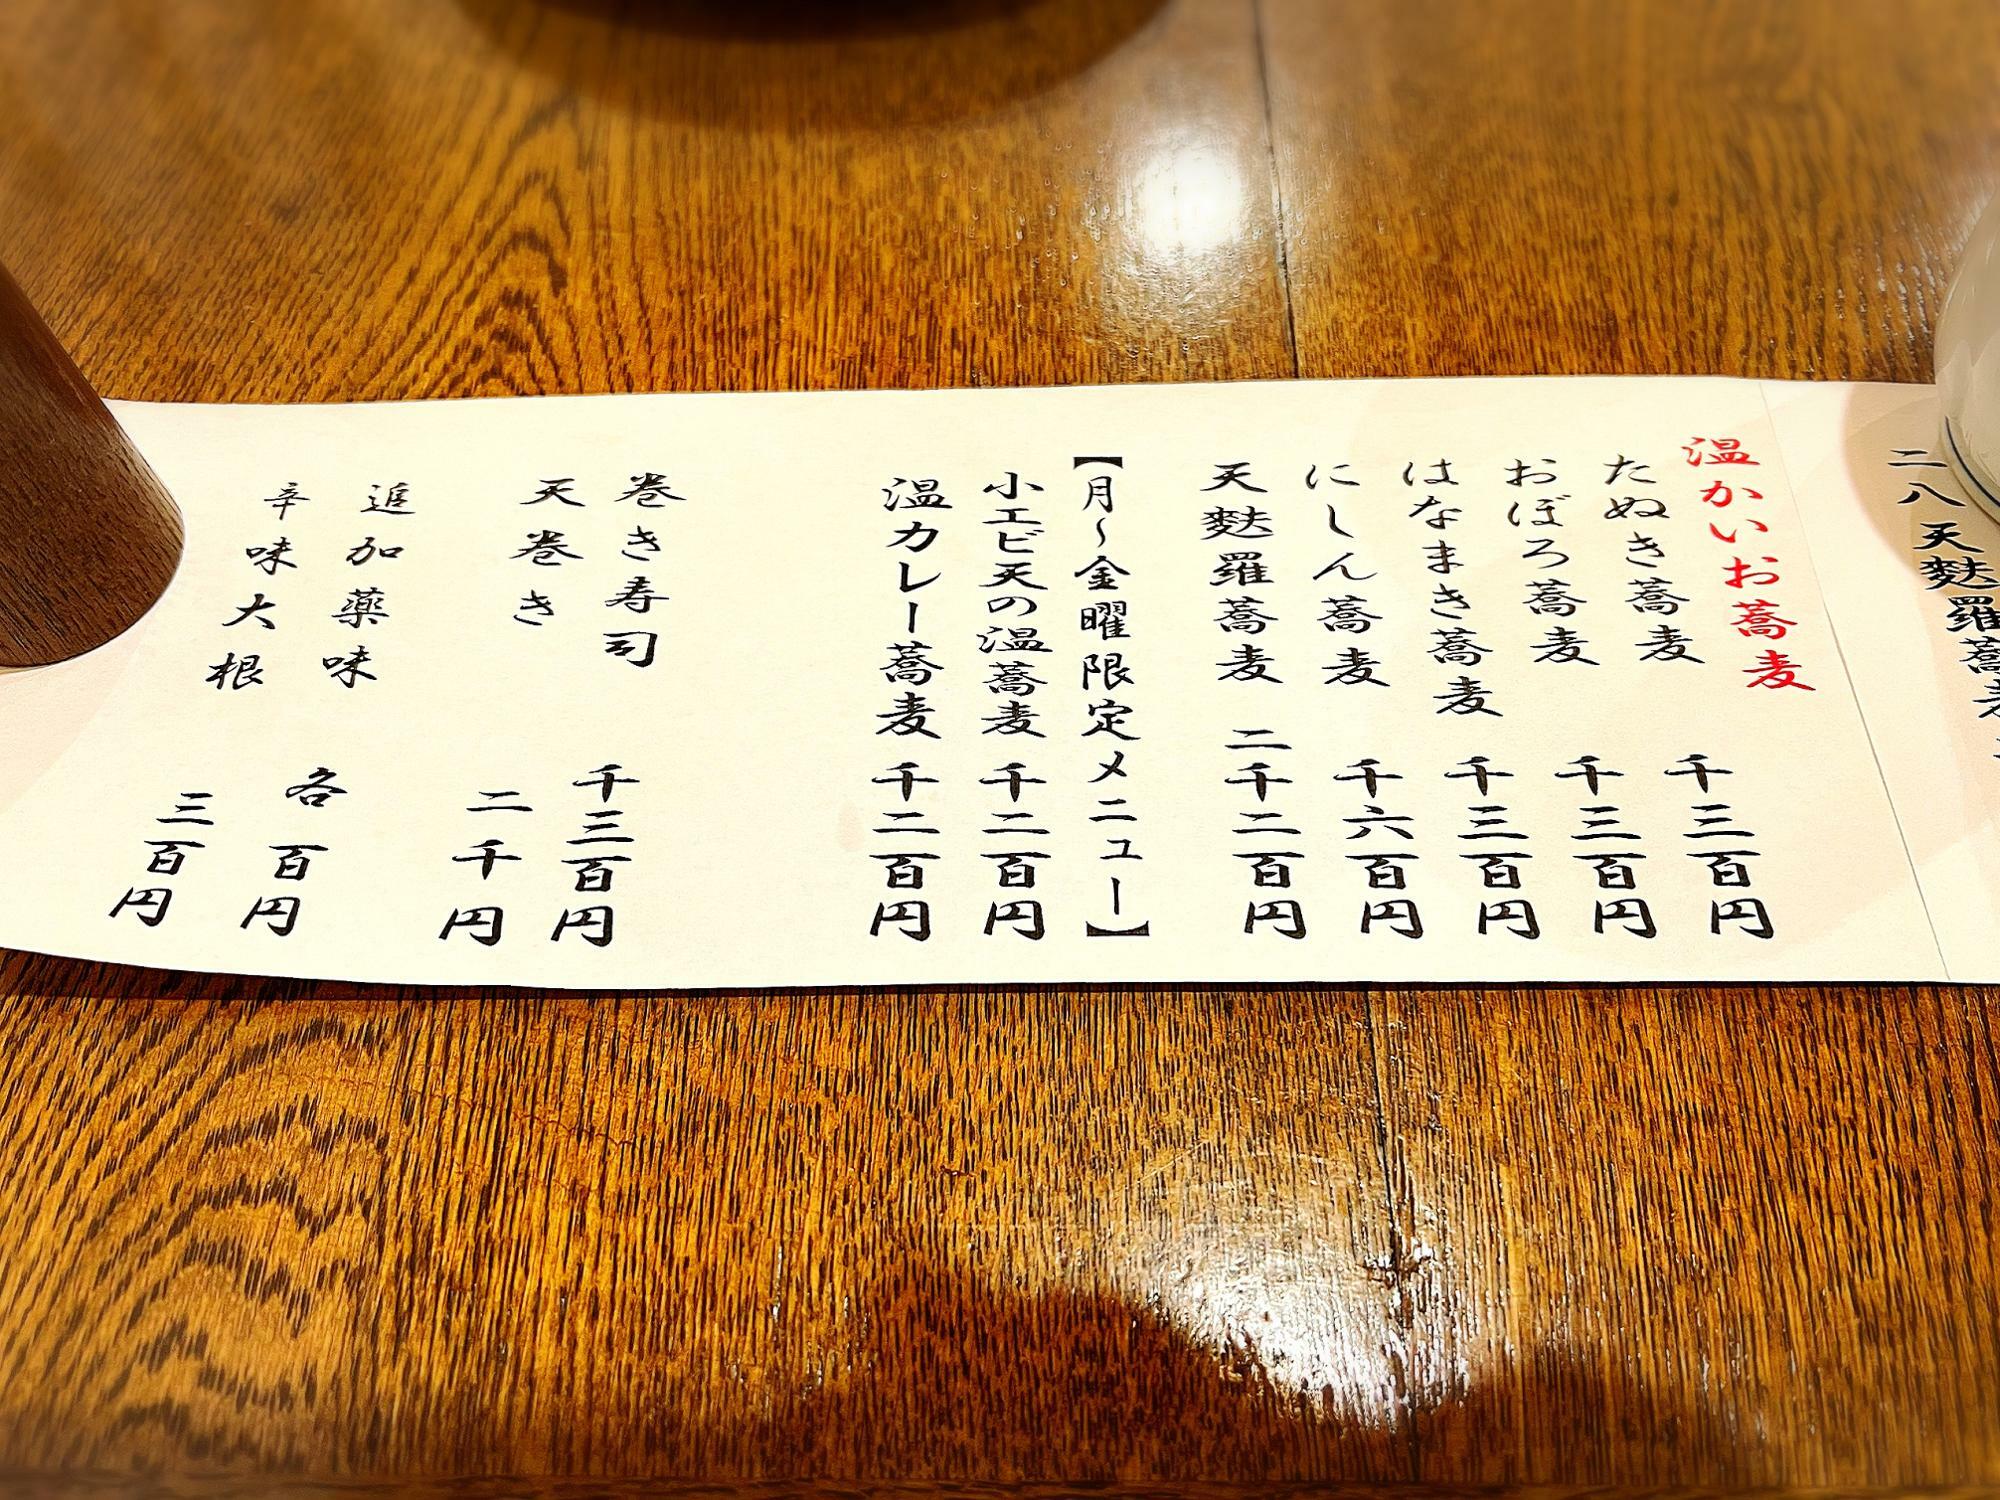 二八天麩羅蕎麦
温かいお蕎麦
たぬき蕎麦 千三百円
おぼろ蕎麦 千三百円
はなまき蕎麦 千三百円
にしん蕎麦 千六百円
天麩羅蕎麦 二千二百円
【月～金曜限定メニュー】
小エビ天の温蕎麦 千二百円
温カレー蕎麦 千二百円
巻き寿司 千三百円
天巻き 二千円
追加薬味 各百円
辛味大根 三百円